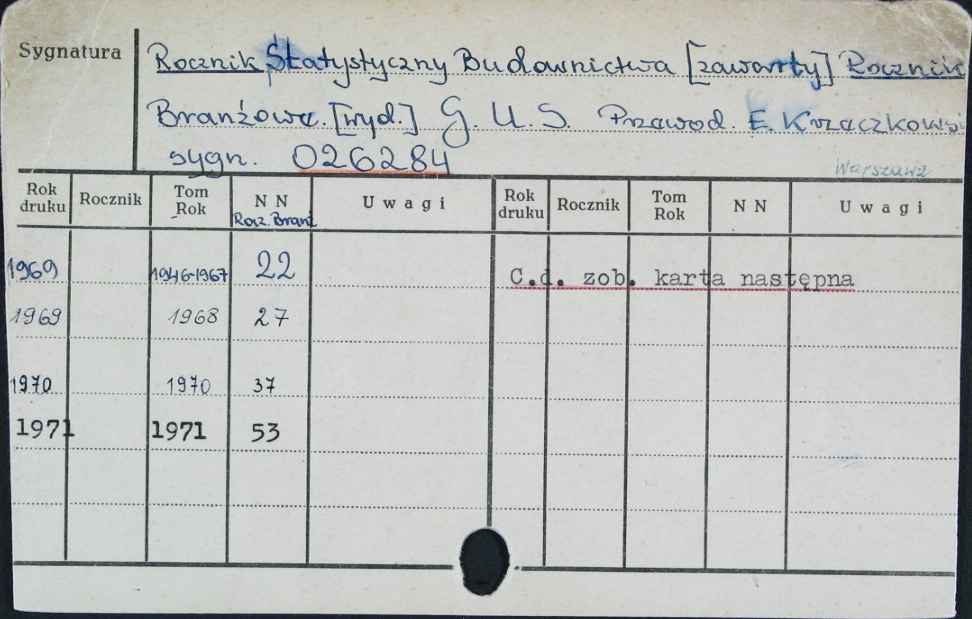 Sygnatura Rocznik Statystyczny Budownictwa [zawarty] Rocznik
Branżowe. [wyd.] G. U. S. Przewod. E. Krzeczkowsk
sygn. 026284
Warszawa
Rok druku Rocznik Tom Rok N N Rocz. Branż Uwagi Rok druku Rocznik Tom Rok N N Uwagi
1969 1946-1967 22 C.d. zob. karta następna
1969 1968 27
1970 1970 37
1971 1971 53